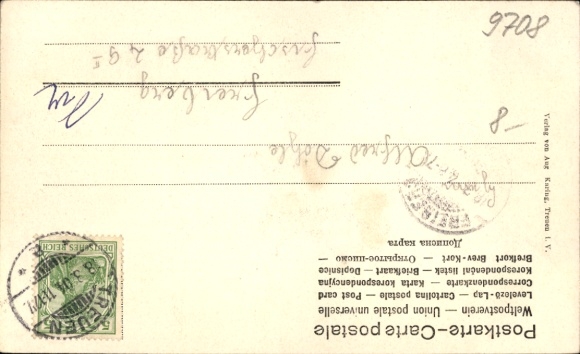 Postkarte—Carte postale
Weltpostverein — Union postale universelle
Levelező-Lap — Cartolina postale — Post card
Correspondenzkarte — Karta korespondencyjna
Korespondenční lístek — Briefkaart — Dopisnice
Brefkort — Brev-Kort — Открытое-письмо
Дописна карта
DEUTSCHES REICH
5
TREUEN
FREIBERG
Alfred Döhle
Freiberg
Fischerstraße 29 II
Verlag von Aug Karing, Treuen i. V.
8—
9708